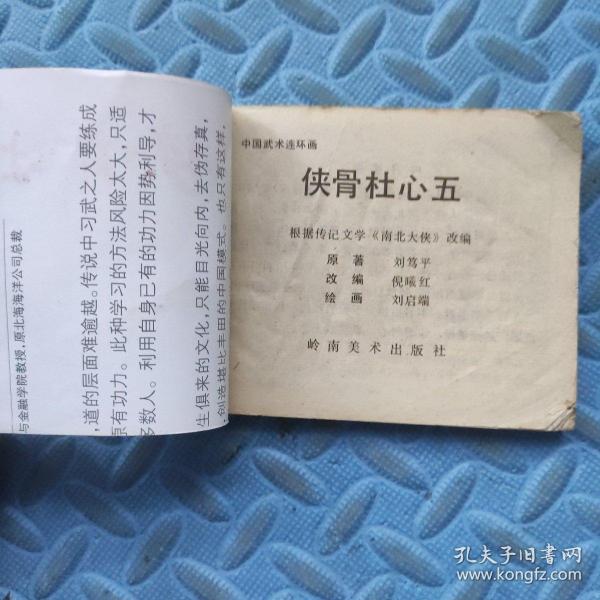 中国武术连环画
侠骨杜心五
根据传记文学《南北大侠》改编
原著 刘笃平
改编 倪曦红
绘画 刘启端
岭南美术出版社
与金融学院教授，原北海海洋公司总裁
道的层面难逾越。传说中习武之人要练成
原有功力。此种学习的方法风险太大，只适
多数人。利用自身已有的功力因势利导，才
生俱来的文化，只能目光向内，去伪存真，
创造堪比丰田的中国模式。也只有这样，
孔夫子旧书网
www.kongfz.com